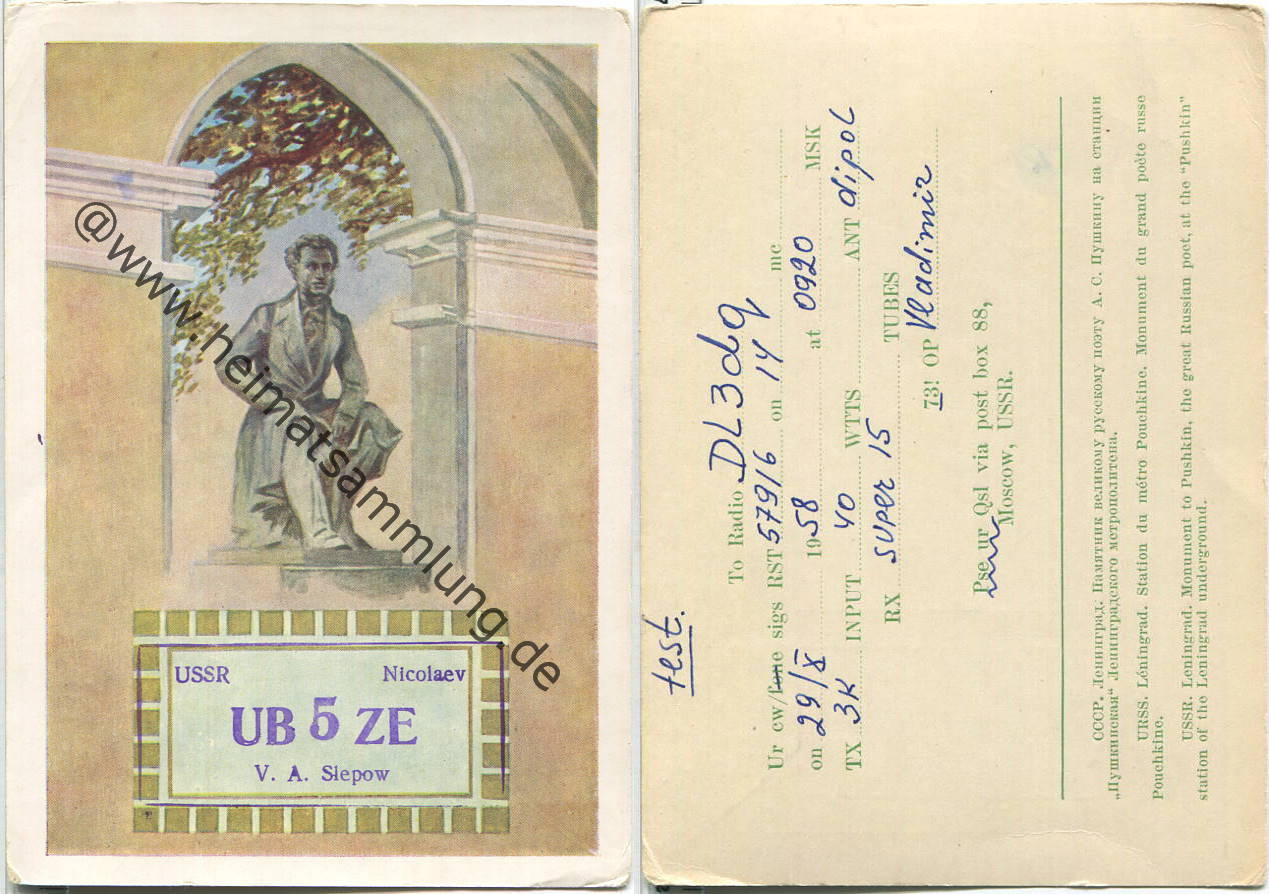 @www.heimatsammlung.de
USSR Nicolaev
UB 5 ZE
V. A. Slepow
test.
To Radio DL3dq
Ur cw/fone sigs RST 579/6 on 14 mc
on 29/X 1958 at 0920 MSK
TX 3K INPUT 40 WTTS ANT dipol
RX super 15 TUBES
73! OP Vladimir
Pse ur Qsl via post box 88,
Moscow, USSR.
СССР. Ленинград: Памятник великому русскому поэту А. С. Пушкину на станции
„Пушкинская“ Ленинградского метрополитена.
URSS. Léningrad. Station du métro Pouchkine. Monument du grand poète russe
Pouchkine.
USSR. Leningrad. Monument to Pushkin, the great Russian poet, at the "Pushkin"
station of the Leningrad underground.